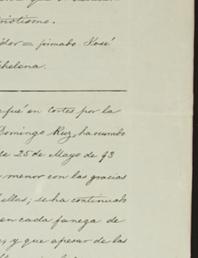 riotismo.
dor = firmado José
chelena.
fué en Cortes por la
Domingo Ruz, ha
de 25 de Mayo de
menor con las gracias
ellas, se ha continuado
en cada fanega de
y que apesar de las